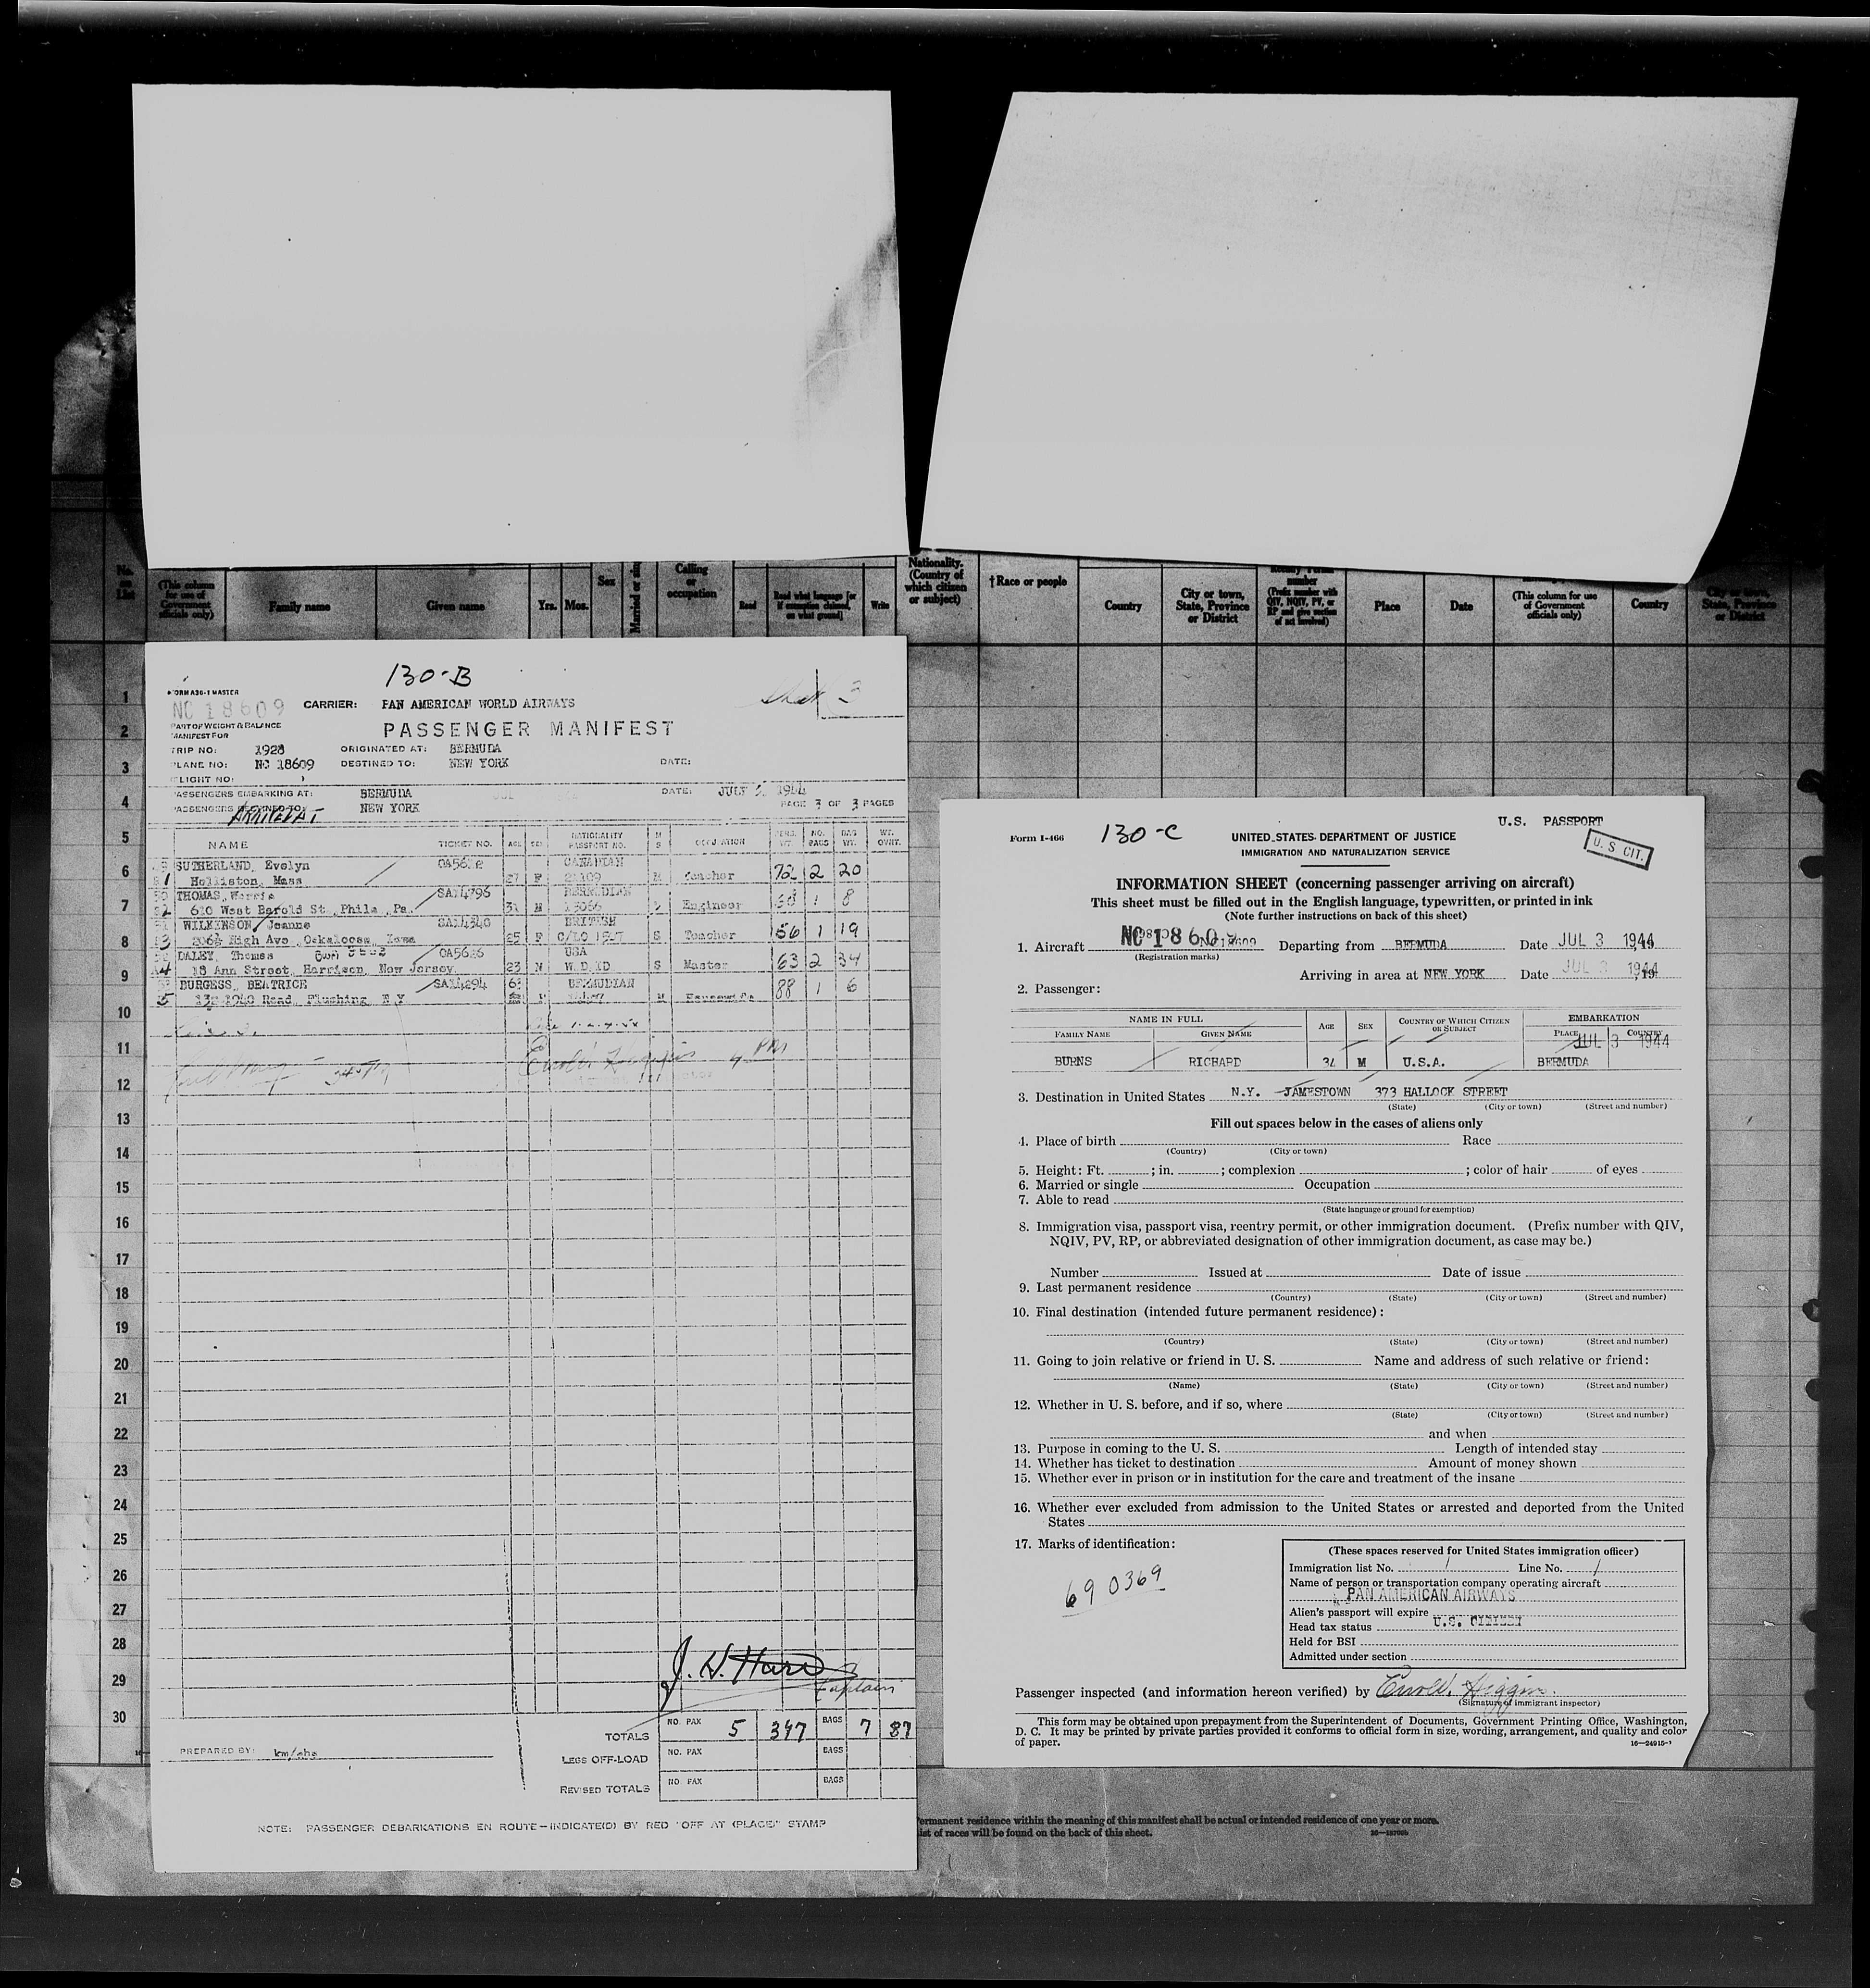 No. on List
(This column for use of Government officials only)
Family name
Given name
Yrs.
Mos.
Sex
Married or
Calling or occupation
Read
Read what language [or if exemption claimed, on what ground]
Write
Nationality. (Country of which citizen or subject)
†Race or people
Country
City or town, State, Province or District
number (Prefix number with QIV, NQIV, PV, or RP and give section of act involved)
Place
Date
(This column for use of Government officials only)
Country
City or town, State, Province or District
1
2
3
4
5
6
7
8
9
10
11
12
13
14
15
16
17
18
19
20
21
22
23
24
25
26
27
28
29
30
130-B
FORM A36-1 MASTER
NC 18609
CARRIER: PAN AMERICAN WORLD AIRWAYS
PART OF WEIGHT & BALANCE
MANIFEST FOR
PASSENGER MANIFEST
TRIP NO: 1928
ORIGINATED AT: BERMUDA
PLANE NO: NC 18609
DESTINED TO: NEW YORK
DATE:
FLIGHT NO:
PASSENGERS EMBARKING AT: BERMUDA
DATE: JULY 1944
PASSENGERS DESTINED TO: NEW YORK
ARRIVED AT
PAGE 3 OF 3 PAGES
NAME
TICKET NO.
AGE
SEX
NATIONALITY PASSPORT NO.
M S
OCCUPATION
PERS. WT
NO. BAGS
BAG WT.
WT. OVHT.
SUTHERLAND, Evelyn CANADIAN
1 Holliston, Mass 27 F M Teacher 72 2 20
THOMAS, Morris SA14796 BERMUDIAN
2 610 West Barold St Phila Pa. 31 M 13066 Engineer 68 1 8
WILKINSON, Jeanne SA14340 BRITISH
3 206½ High Ave, Oskaloosa, Iowa 25 F S Teacher 56 1 19
DALEY, Thomas USA
4 18 Ann Street, Harrison, New Jersey 23 M W.D. ID S Master 63 2 34
BURGESS, BEATRICE SA14294 BERMUDIAN
5 Road, Flushing N Y M Housewife 88 1 6
J. H. Hart
Captain
TOTALS
NO. PAX 5 347 BAGS 7 87
PREPARED BY:
LEGS OFF-LOAD
NO. PAX BAGS
REVISED TOTALS
NO. PAX BAGS
NOTE: PASSENGER DEBARKATIONS EN ROUTE—INDICATE(D) BY RED "OFF AT (PLACE)" STAMP
U.S. PASSPORT
Form I-466
130-C
UNITED STATES DEPARTMENT OF JUSTICE
IMMIGRATION AND NATURALIZATION SERVICE
U. S. CIT.
INFORMATION SHEET (concerning passenger arriving on aircraft)
This sheet must be filled out in the English language, typewritten, or printed in ink
(Note further instructions on back of this sheet)
1. Aircraft NC 18609 Departing from BERMUDA Date JUL 3 1944
(Registration marks)
Arriving in area at NEW YORK Date JUL 3 1944
2. Passenger:
NAME IN FULL
FAMILY NAME
GIVEN NAME
AGE
SEX
COUNTRY OF WHICH CITIZEN OR SUBJECT
EMBARKATION
PLACE
COUNTRY
JUL 3 1944
BURNS RICHARD 34 M U.S.A. BERMUDA
3. Destination in United States N.Y. JAMESTOWN 373 HALLOCK STREET
(State) (City or town) (Street and number)
Fill out spaces below in the cases of aliens only
4. Place of birth Race
(Country) (City or town)
5. Height: Ft. ; in. ; complexion ; color of hair of eyes
6. Married or single Occupation
7. Able to read
(State language or ground for exemption)
8. Immigration visa, passport visa, reentry permit, or other immigration document. (Prefix number with QIV,
NQIV, PV, RP, or abbreviated designation of other immigration document, as case may be.)
Number Issued at Date of issue
9. Last permanent residence
(Country) (State) (City or town) (Street and number)
10. Final destination (intended future permanent residence):
(Country) (State) (City or town) (Street and number)
11. Going to join relative or friend in U. S. Name and address of such relative or friend:
(Name) (State) (City or town) (Street and number)
12. Whether in U. S. before, and if so, where
(State) (City or town) (Street and number)
and when
13. Purpose in coming to the U. S. Length of intended stay
14. Whether has ticket to destination Amount of money shown
15. Whether ever in prison or in institution for the care and treatment of the insane
16. Whether ever excluded from admission to the United States or arrested and deported from the United
States
17. Marks of identification:
690369
(These spaces reserved for United States immigration officer)
Immigration list No. 1 Line No. 1
Name of person or transportation company operating aircraft
PAN AMERICAN AIRWAYS
Alien's passport will expire
Head tax status U.S. CITIZEN
Held for BSI
Admitted under section
Passenger inspected (and information hereon verified) by
(Signature of immigrant inspector)
This form may be obtained upon prepayment from the Superintendent of Documents, Government Printing Office, Washington,
D. C. It may be printed by private parties provided it conforms to official form in size, wording, arrangement, and quality and color
of paper.
16—24915-1
ermanent residence within the meaning of this manifest shall be actual or intended residence of one year or more.
ist of races will be found on the back of this sheet.